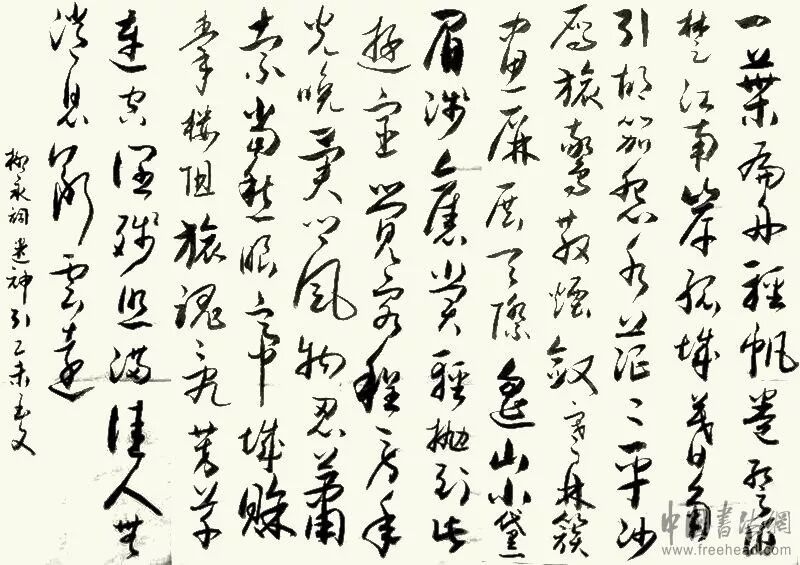 一葉扁舟輕帆卷暫泊
楚江南岸孤城暮角
引胡笳怨水茫〻平沙
雁旋驚散煙斂寒林簇
畫屏展天際遙山小黛
眉淺舊賞輕拋到此
遊宦覺客程勞年
光晚異鄉風物忍蕭
索當愁眼帝城賒
秦樓阻旅魂亂芳草
連空闊殘照滿佳人無
消息斷雲遠
柳永詞迷神引乙未
中国書法網
www.freehead.com